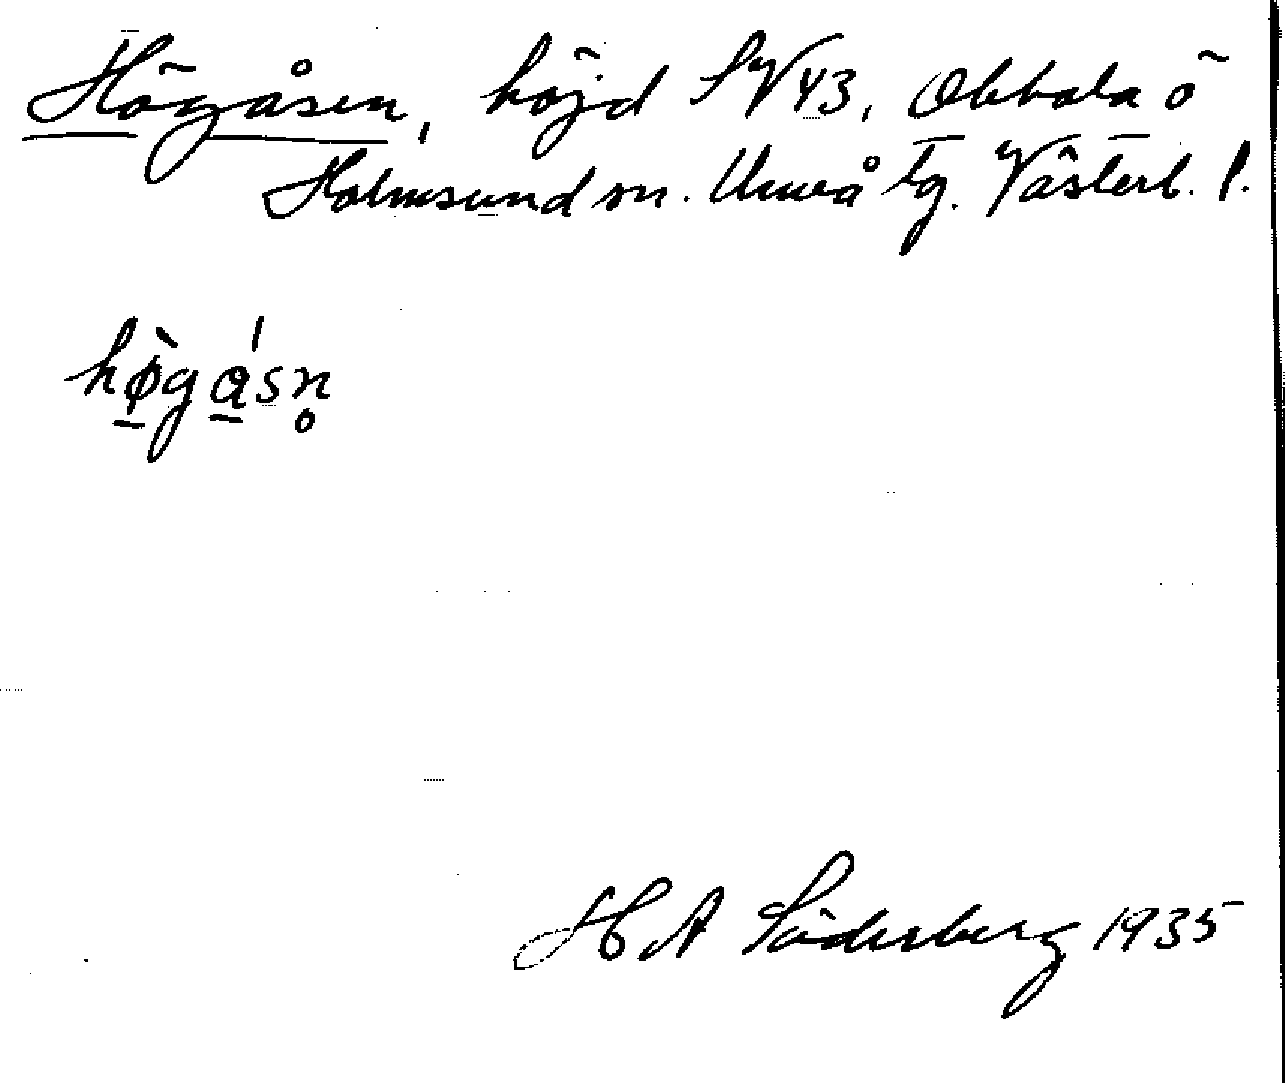 Högåsen, höjd SV 43, Obbola ö
Holmsund sn. Umeå tg. Västerb. l.
hø̱̀gǻ̱sn̥
H A Söderberg 1935